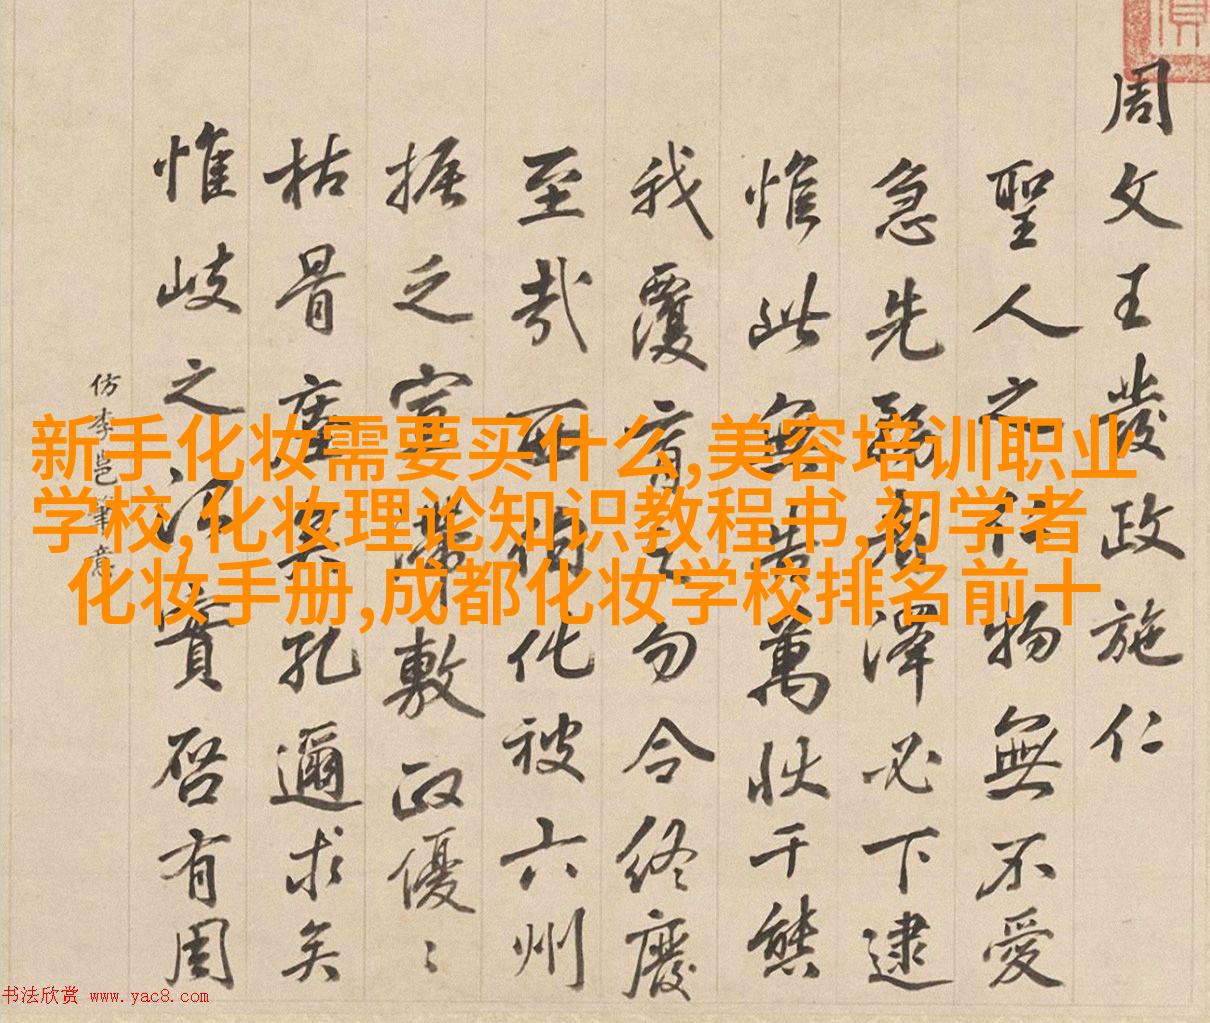 周文王發政施仁
聖人之物無不愛
急先澤必下逮
惟此無告萬狀千態
我覆育之勿令終廢
至哉西化被六州
振之敷政優〻
枯骨孔邇求矣
惟岐之治實啓有周
仿李邕筆意
新手化妆需要买什么,美容培训职业
学校,化妆理论知识教程书,初学者
化妆手册,成都化妆学校排名前十
书法欣赏 www.yac8.com